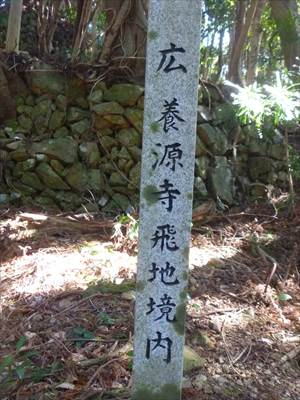 広養源寺飛地境内